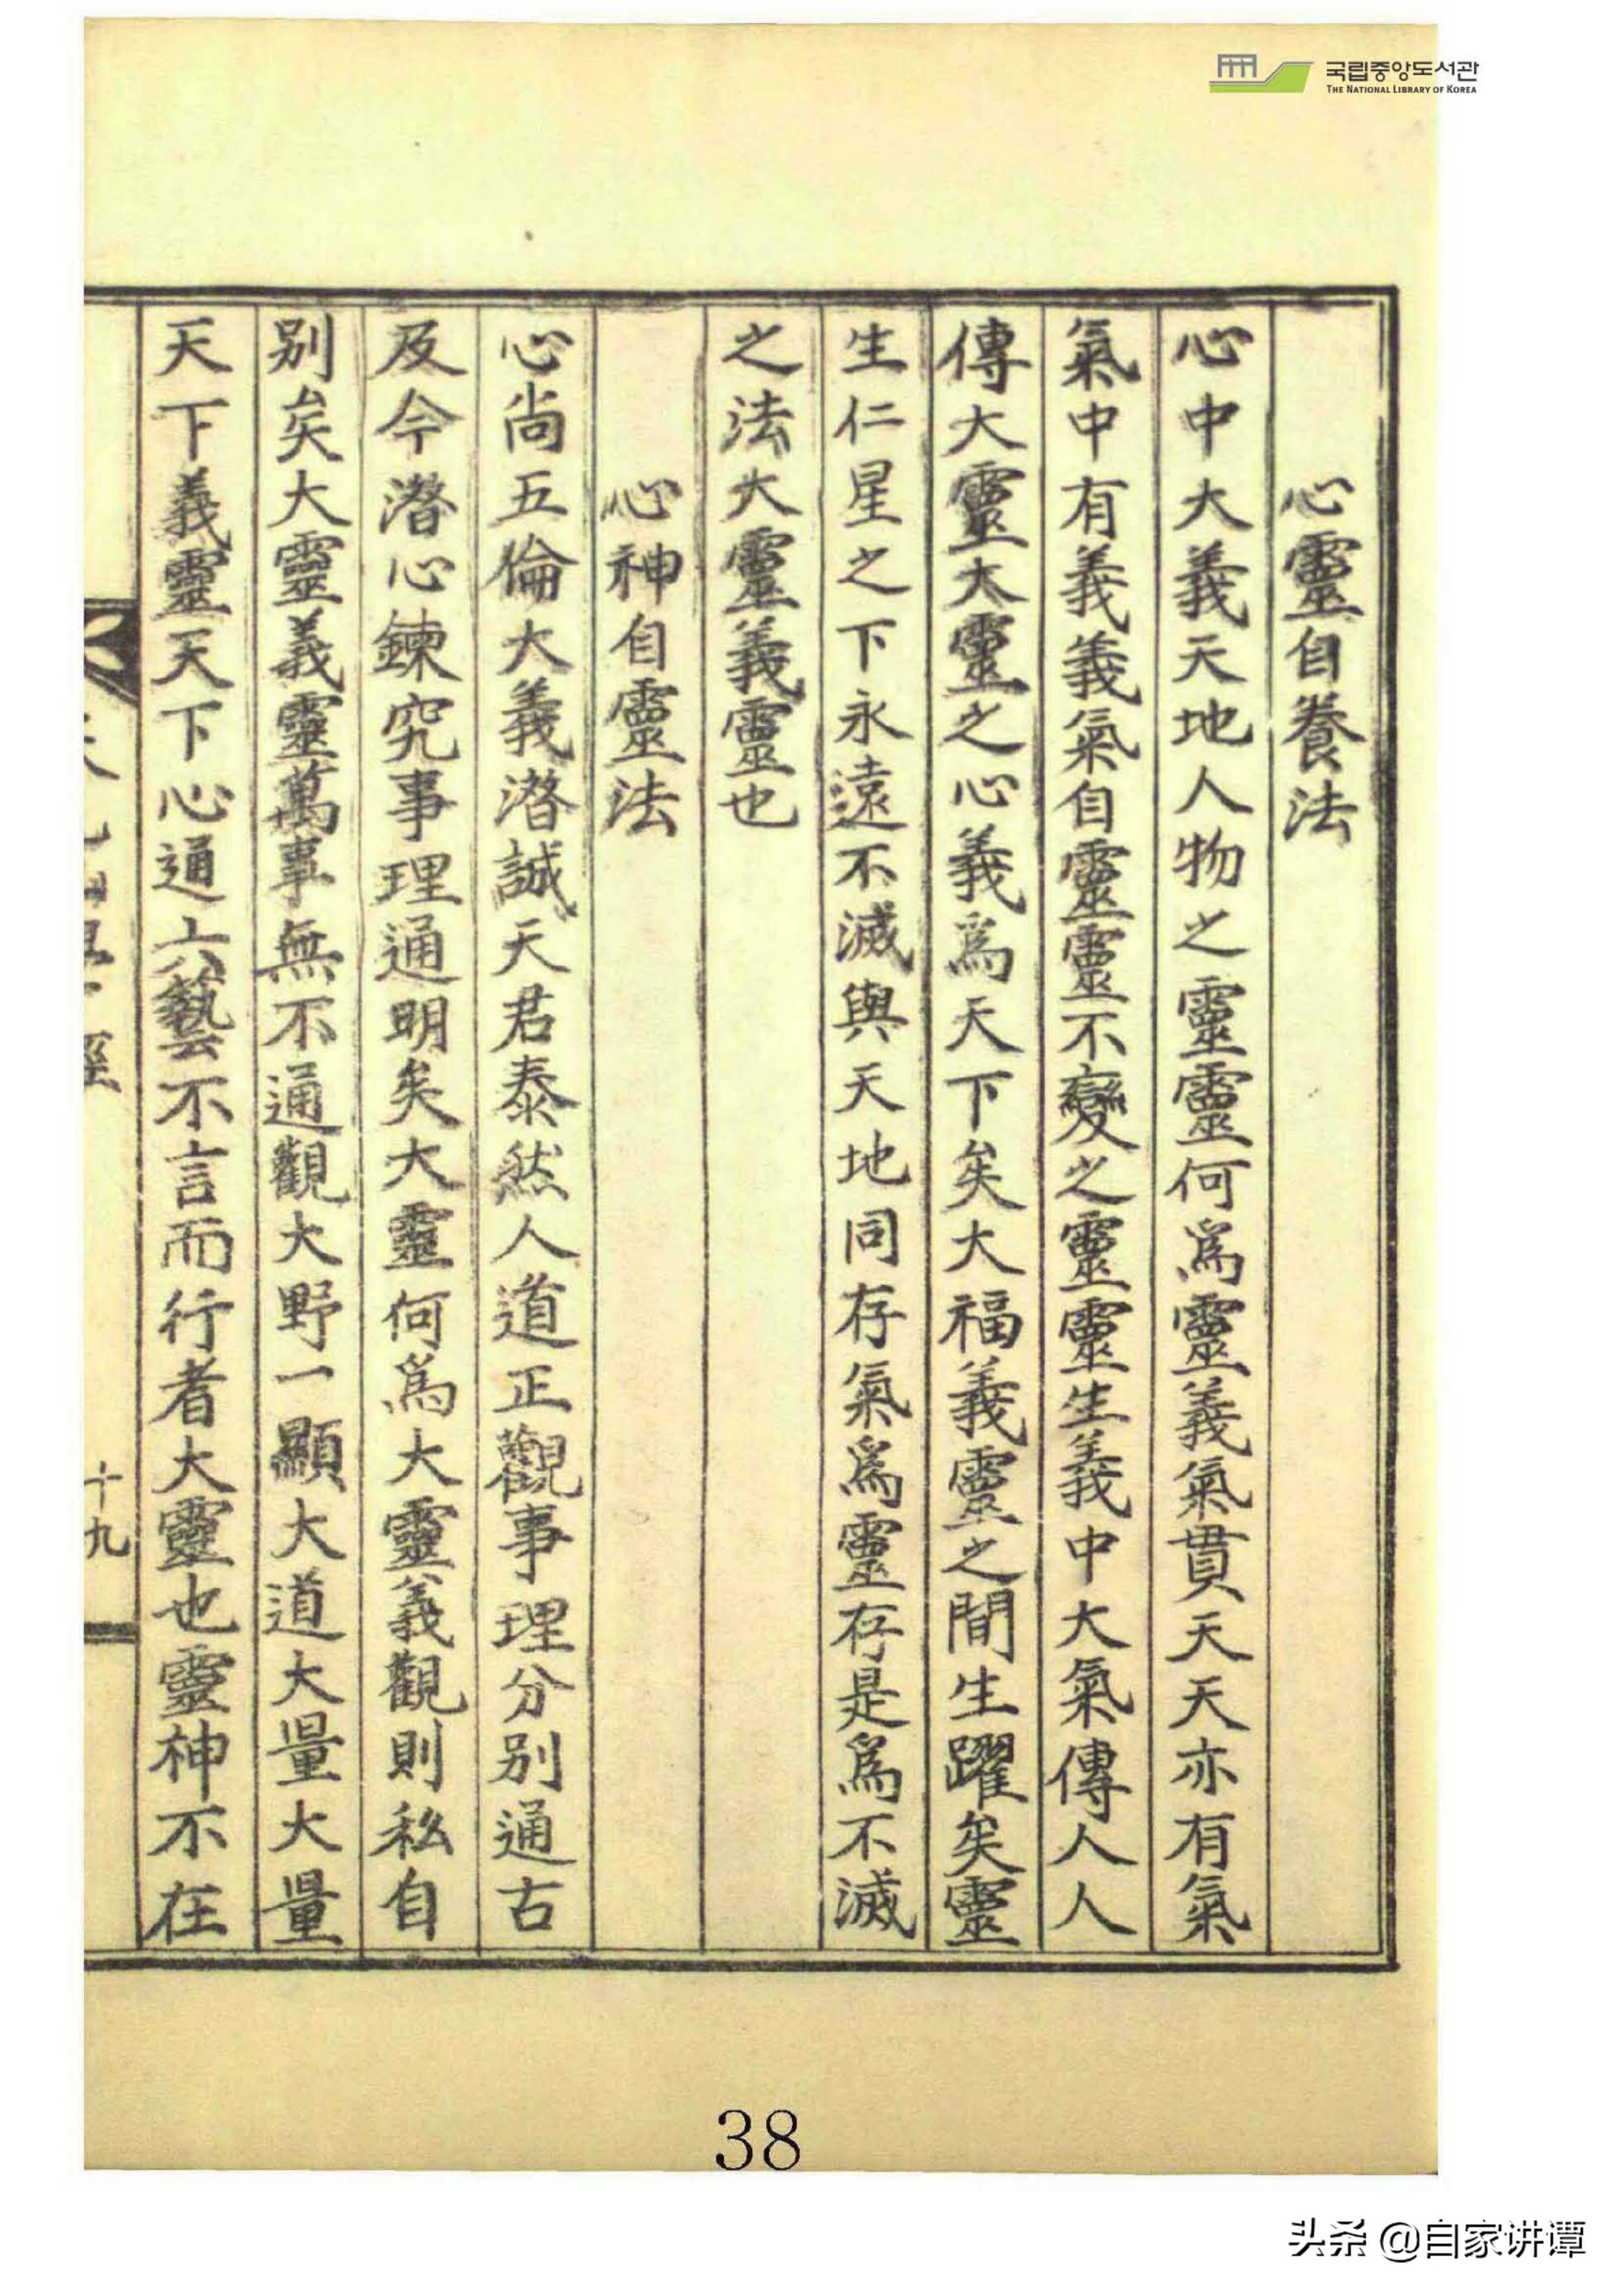 국립중앙도서관
THE NATIONAL LIBRARY OF KOREA
心靈自養法
心中大義天地人物之靈靈何爲靈義氣貫天天亦有氣
氣中有義義氣自靈靈不變之靈靈生義中大氣傳人人
傳大靈大靈之心義爲天下矣大福義靈之間生躍矣靈
生仁星之下永遠不滅與天地同存氣爲靈存是爲不滅
之法大靈義靈也
心神自靈法
心尚五倫大義潛誠天君泰然人道正觀事理分别通古
及今潛心鍊究事理通明矣大靈何爲大靈義觀則私自
别矣大靈義靈萬事無不通觀大野一顯大道大量大量
天下義靈天下心通六藝不言而行者大靈也靈神不在
十九
38
头条 @自家讲谭